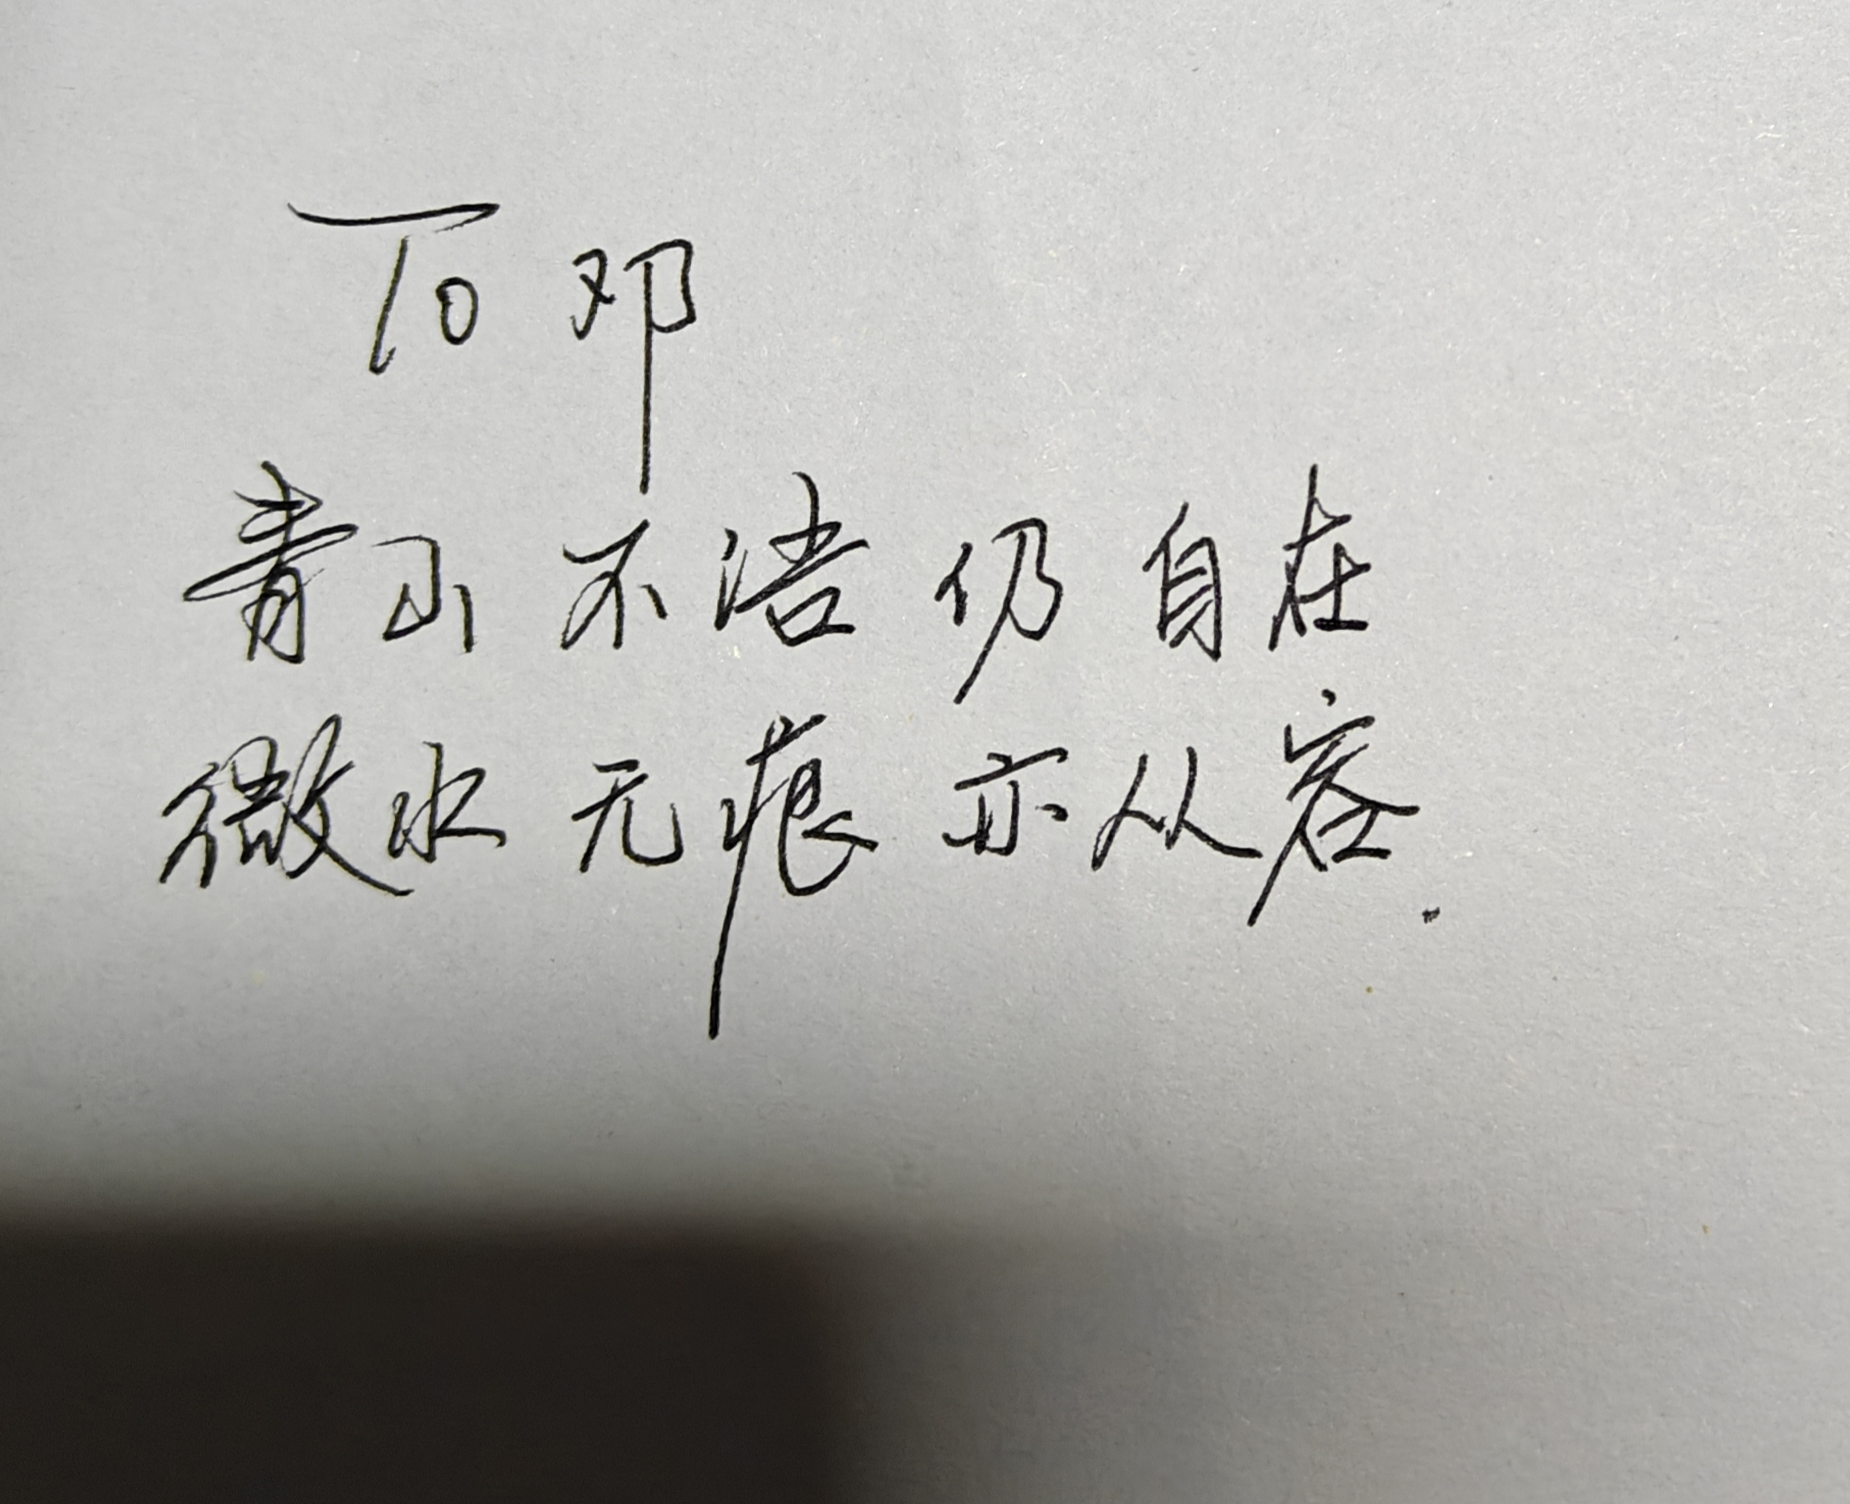 To 邓
青山不语仍自在
微水无痕亦从容.